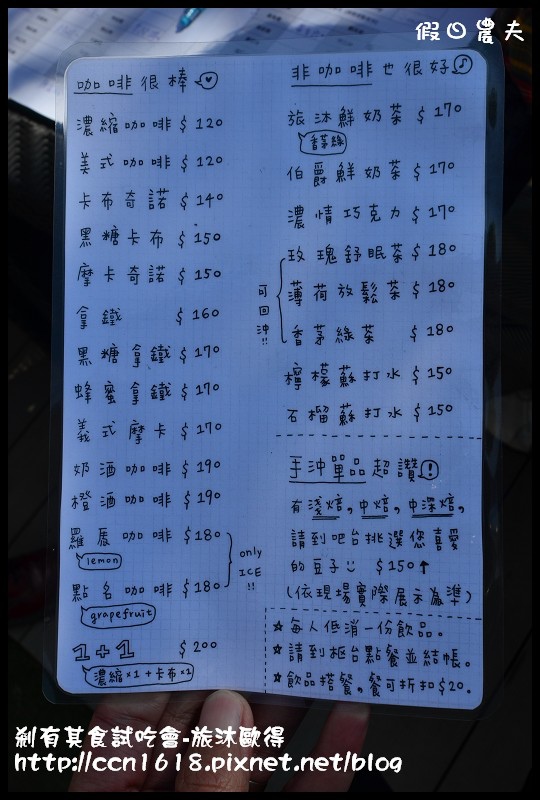 假日農夫
咖啡很棒
濃縮咖啡 $120
美式咖啡 $120
卡布奇諾 $140
黑糖卡布 $150
摩卡奇諾 $150
拿鐵 $160
黑糖拿鐵 $170
蜂蜜拿鐵 $170
義式摩卡 $170
奶酒咖啡 $190
橙酒咖啡 $190
羅馬咖啡 $180
lemon
點名咖啡 $180
grapefruit
only ICE!!
1+1 $200
濃縮×1+卡布×1
非咖啡也很好
旅沐鮮奶茶 $170
香茅綠
伯爵鮮奶茶 $170
濃情巧克力 $170
玫瑰舒眠茶 $180
薄荷放鬆茶 $180
香茅綠茶 $180
可回沖!!
檸檬蘇打水 $150
石榴蘇打水 $150
手沖單品超讚!
有淺焙,中焙,中深焙,
請到吧台挑選您喜愛
的豆子 $150↑
(依現場實際展示為準)
★每人低消一份飲品。
★請到柜台點餐並結帳。
★飲品搭餐,餐可折扣$20。
剎有其食試吃會-旅沐歐得
http://ccn1618.pixnet.net/blog